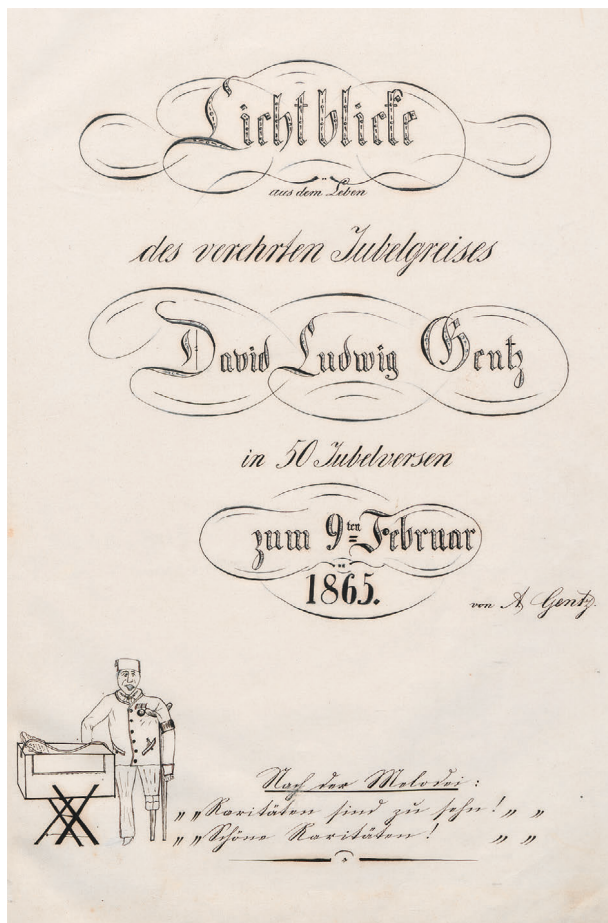 Lichtblicke
aus dem Leben
des verehrten Jubelgreises
David Ludwig Gentz
in 50 Jubelversen
zum 9ten Februar
1865.
von A Gentz.
Nach der Melodei:
„ „Raritäten sind zu sehn! „ „
„ „Schöne Raritäten! „ „